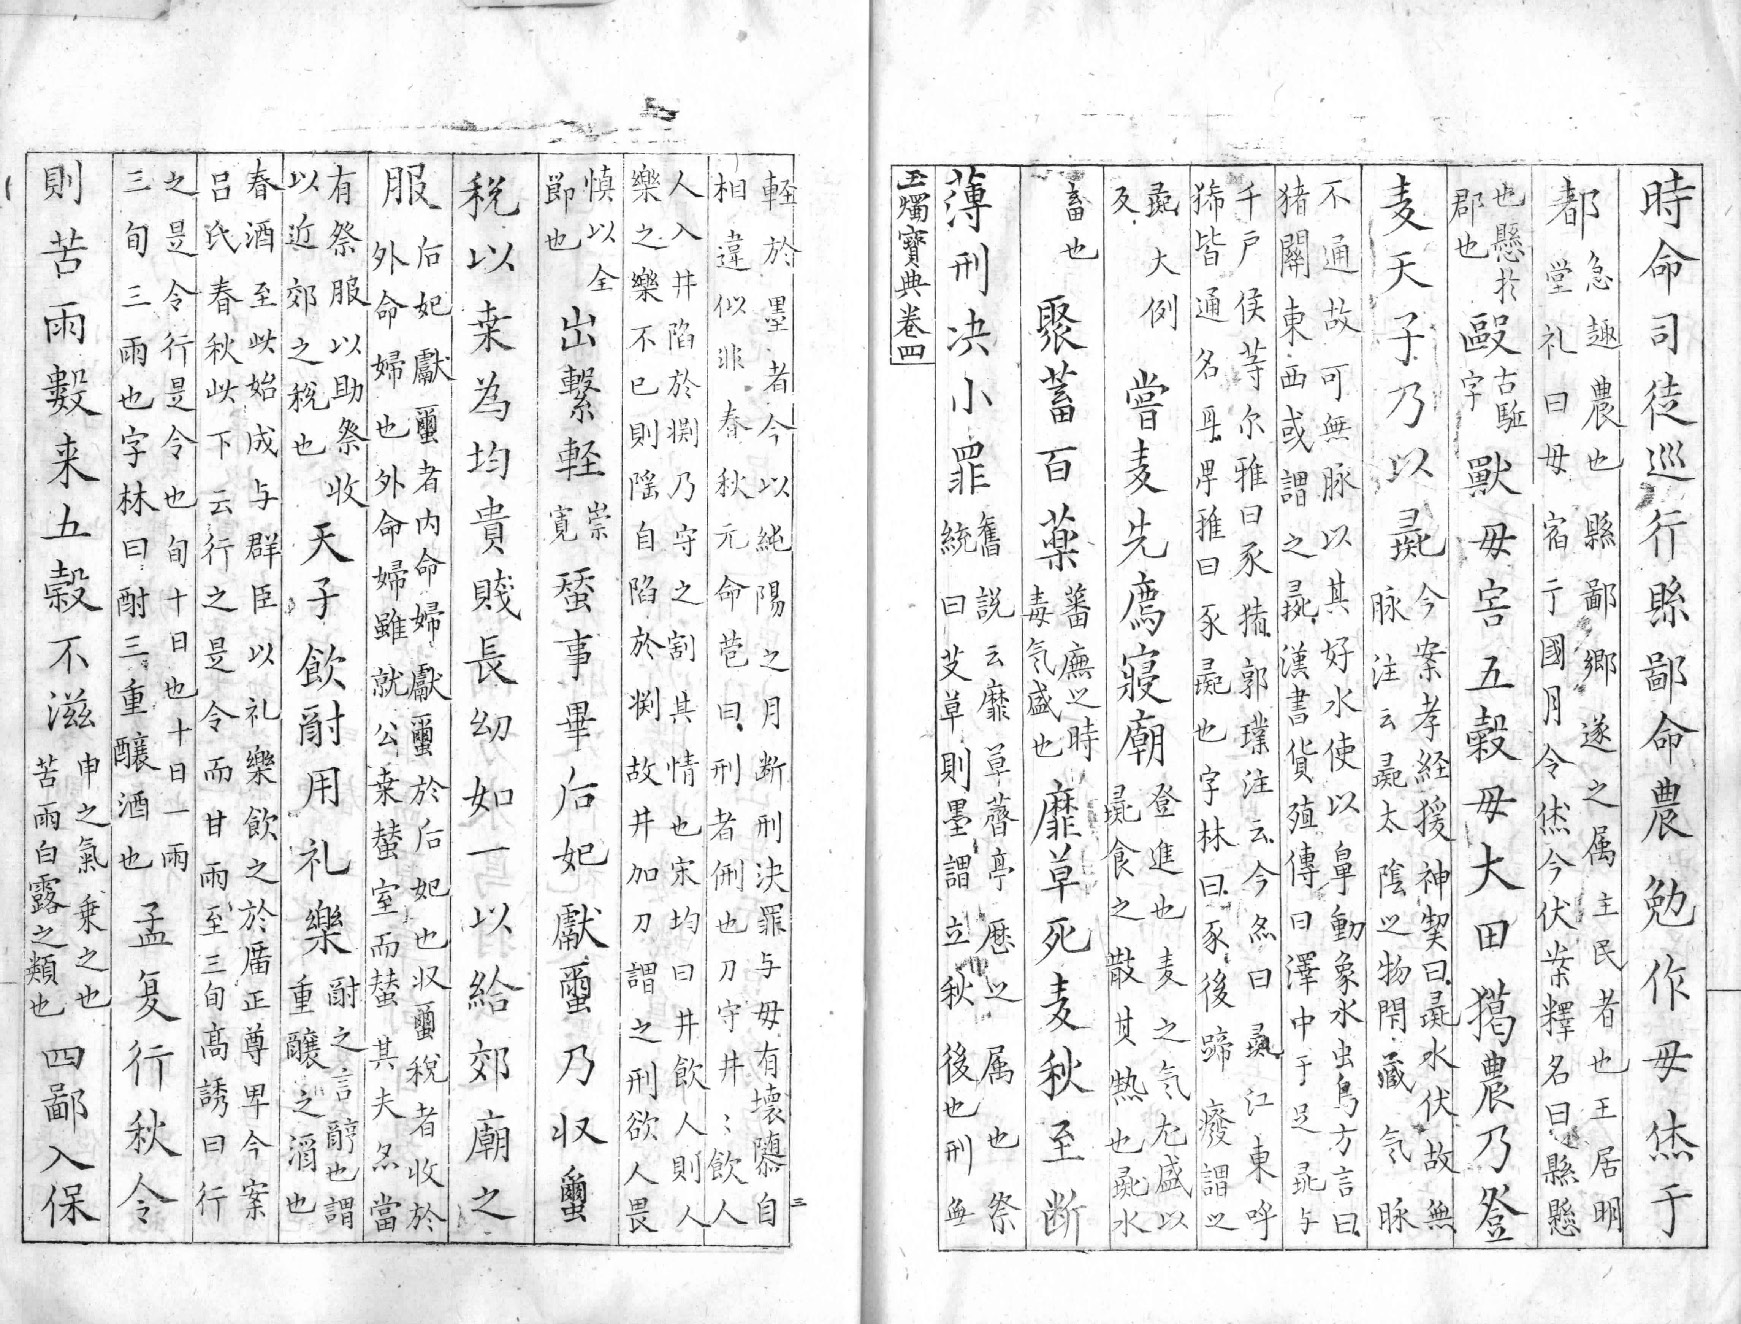 時命司徒巡行縣鄙命農勉作毋烋于
都急趣農也縣鄙鄉遂之属主民者也王居明
堂礼曰毋宿于國月令烋今伏案釋名曰縣懸
也懸於郡也敺古駈字獸毋害五穀毋大田獦農乃登
麦天子乃以彘今案孝経援神契曰彘水伏故無
脉注云彘太陰之物閇藏气脉
不通故可無脉以其好水使以鼻動象水虫鳥方言曰
猪關東西或謂之彘漢書貨殖傳曰澤中于足彘与
千戸侯等尔雅曰豕猪郭璞注云今亦曰彘江東呼
豨皆通名耳畢雅曰豕彘也字林曰豕後蹄癈謂之
彘大例反嘗麦先薦寢廟登進也麦之气尤盛以
彘食之散其熱也彘水
畜也聚蓄百藥蕃廡之時毒气盛也靡草死麦秋至断
薄刑决小罪舊説云靡草薺亭歴之属也祭
統曰艾草則墨謂立秋後也刑無
玉燭寶典卷四
軽於墨者今以純陽之月断刑决罪与毋有壊隳自
相違似非春秋元命苞曰刑者侀也刀守井〻飲人
人入井陷於㓝乃守之割其情也宋均曰井飲人則人
樂之樂不已則滛自陷於㓝故井加刀謂之刑欲人畏
慎以全節也出繫軽崇寛蚕事畢后妃獻蠒乃収蠒
税以桒為均貴賎長幼如一以給郊廟之
服后妃獻蠒者内命婦獻蠒於后妃也収蠒税者收於
外命婦也外命婦雖就公桒蝅室而蝅其夫亦當
有祭服以助祭收以近郊之税也天子飲酎用礼樂酎之言醇也謂
重釀之酒也
春酒至此始成与群臣以礼樂飲之於廟正尊卑今案
吕氏春秋此下云行之是令而甘雨至三旬髙誘曰行
之是令行是令也旬十日也十日一雨
三旬三雨也字林曰酎三重釀酒也孟夏行秋令
則苦雨數来五穀不滋申之氣乗之也苦雨白露之類也四鄙入保
三